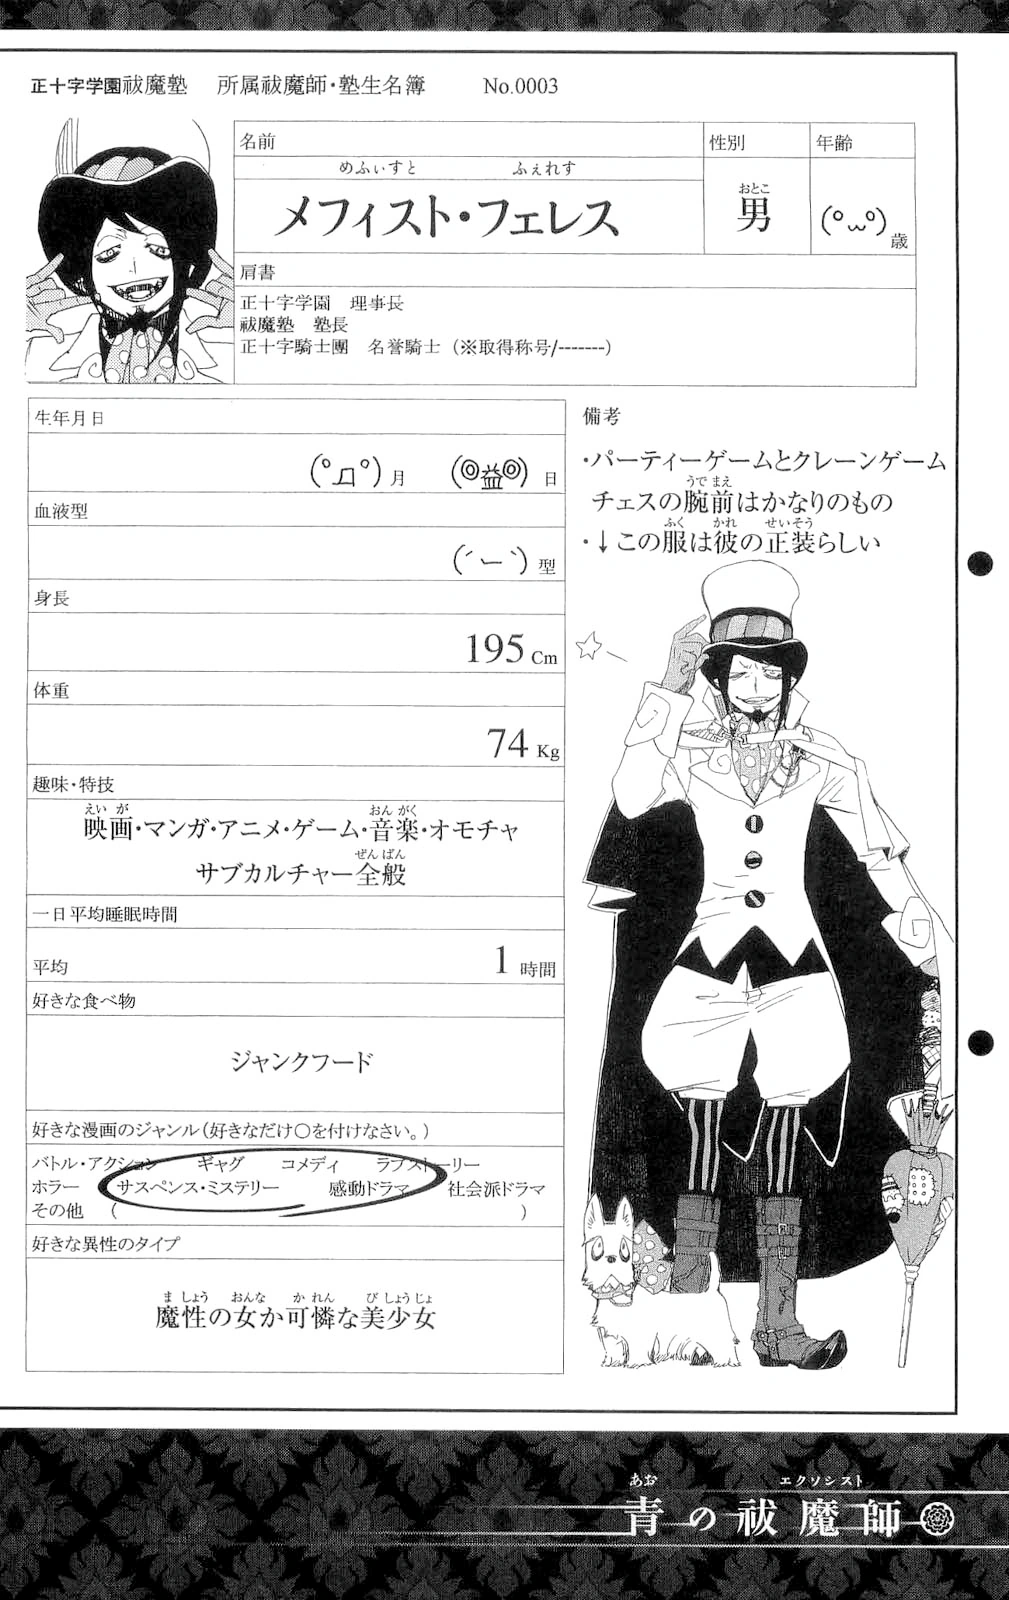 正十字学園祓魔塾 所属祓魔師・塾生名簿 No.0003
名前 性別 年齢
めふぃすと ふぇれす
メフィスト・フェレス
おとこ
男
(°ω°)歳
肩書
正十字学園 理事長
祓魔塾 塾長
正十字騎士團 名誉騎士(※取得称号/-------)
生年月日
(°д°)月 (◎益◎)日
血液型
(´ー`)型
身長
195 Cm
体重
74 Kg
趣味・特技
えいが おんがく
映画・マンガ・アニメ・ゲーム・音楽・オモチャ
ぜんぱん
サブカルチャー全般
一日平均睡眠時間
平均 1 時間
好きな食べ物
ジャンクフード
好きな漫画のジャンル(好きなだけ○を付けなさい。)
バトル・アクション ギャグ コメディ ラブストーリー
ホラー サスペンス・ミステリー 感動ドラマ 社会派ドラマ
その他 ( )
好きな異性のタイプ
ましょう おんな かれん びしょうじょ
魔性の女か可憐な美少女
備考
・パーティーゲームとクレーンゲーム
うでまえ
チェスの腕前はかなりのもの
ふく かれ せいそう
・↓この服は彼の正装らしい
あお エクソシスト
青の祓魔師